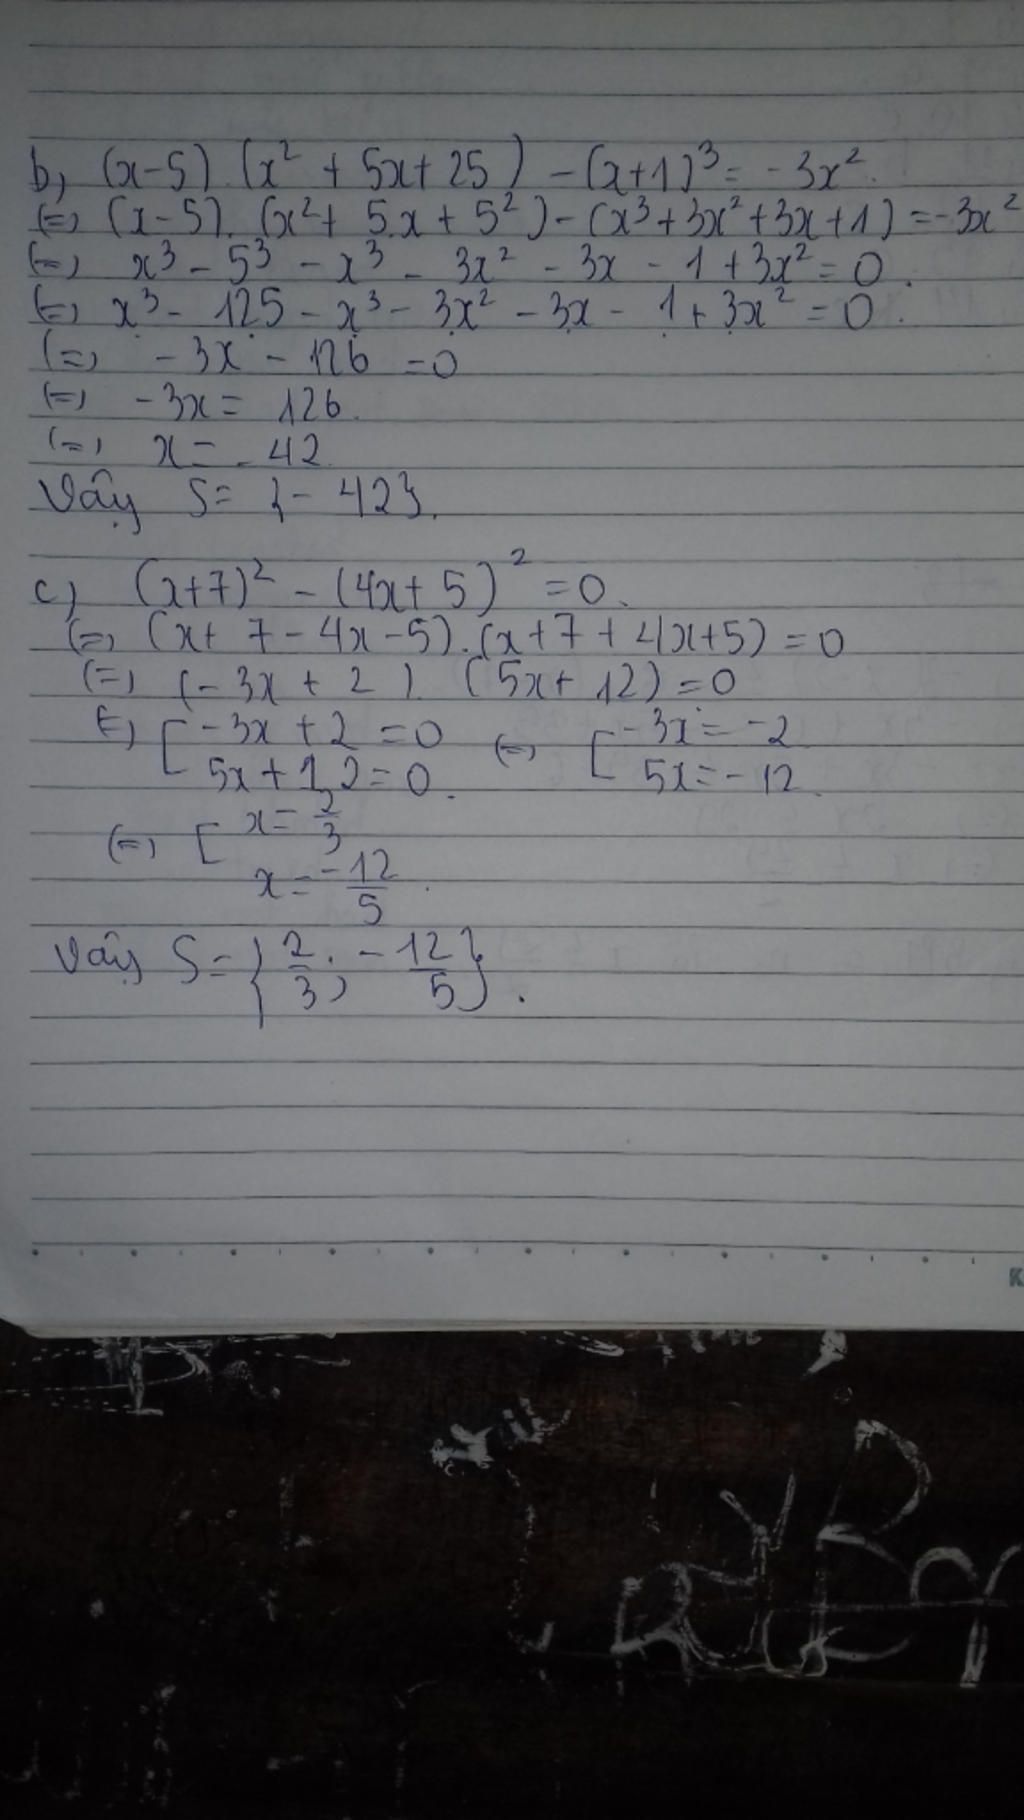 b) (x-5).(x² + 5x+25) - (x+1)³ = -3x².
(=) (x-5).(x²+ 5.x + 5²) - (x³+3x²+3x+1) = -3x²
(=) x³ - 5³ - x³ - 3x² - 3x - 1 + 3x² = 0.
(=) x³ - 125 - x³ - 3x² - 3x - 1 + 3x² = 0.
(=) -3x - 126 = 0
(=) -3x = 126.
(=) x = -42.
Vậy S = {-42}.
c) (x+7)² - (4x+5)² = 0.
(=) (x+7-4x-5).(x+7+4x+5) = 0
(=) (-3x+2).(5x+12) = 0
(=) [ -3x+2 = 0 (=) [ -3x = -2
5x+12 = 0. 5x = -12.
(=) [ x = 2/3
x = -12/5.
Vậy S = {2/3; -12/5}.
K